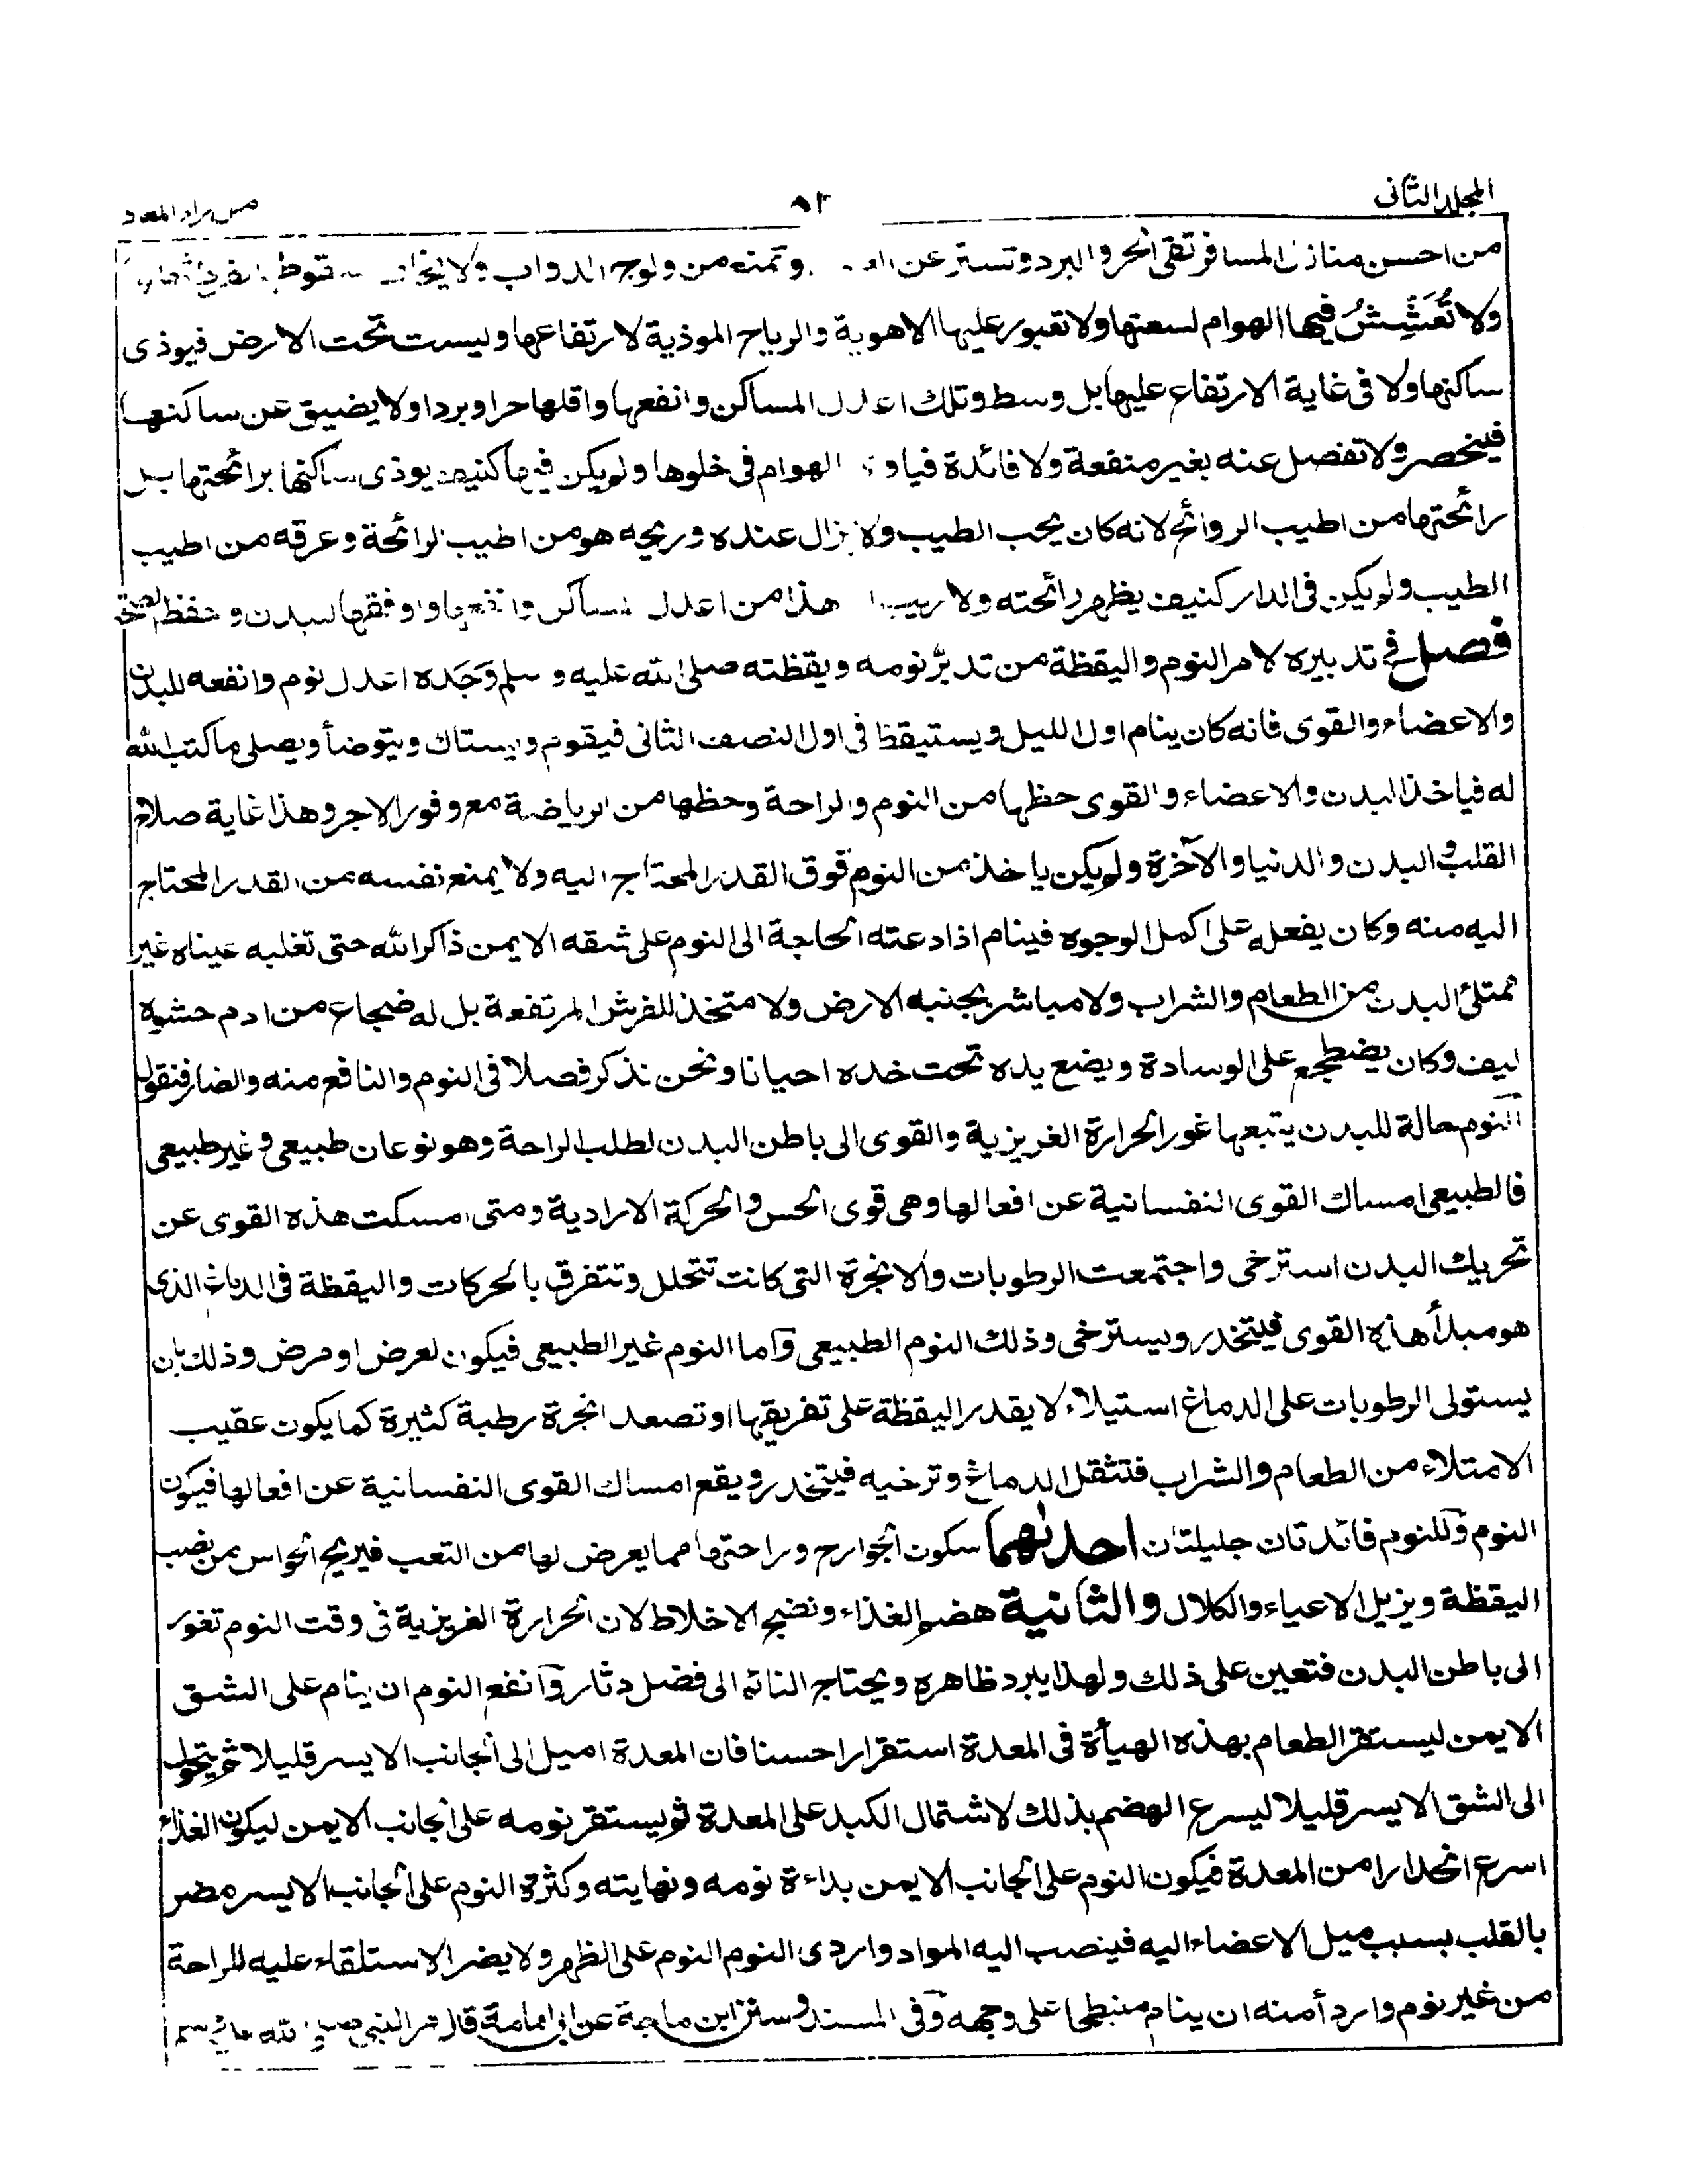 المجلد الثانى
٩٢
من زاد المعاد
من احسن منازل المسافر تقى الحر والبرد وتستر عن وتمنع من ولوج الدواب ولا يخاف سقوطها
ولا تُعَشِّشُ فيها الهوام لسعتها ولا تعبور عليها الاهوية والرياح الموذية لارتفاعها وليست تحت الارض فيوذى
ساكنها ولا فى غاية الارتفاع عليها بل وسط وتلك اعدل المساكن وانفعها واقلها حرا وبردا ولا يضيق عن ساكنها
فينحصر ولا تفضل عنه بغير منفعة ولا فائدة فياو الهوام فى خلوها ولم يكن فيها كنيف يوذى ساكنها برائحتها بل
رائحتها من اطيب الروائح لانه كان يحب الطيب ولا يزال عنده وريحه هو من اطيب الرائحة وعرقه من اطيب
الطيب ولم يكن فى الدار كنيف يظهر رائحته ولا ريب هذا من اعدل المساكن وانفعها واوفقها للبدن وحفظ الصحة
فصل فى تدبيره لامر النوم واليقظة من تدبّر نومه ويقظته صلى الله عليه وسلم وَجَدَه اعدل نوم وانفعه للبدن
والاعضاء والقوى فانه كان ينام اول الليل ويستيقظ فى اول النصف الثانى فيقوم ويستاك ويتوضأ ويصلى ما كتب الله
له فياخذ البدن والاعضاء والقوى حظها من النوم والراحة وحظها من الرياضة مع وفور الاجر وهذا غاية صلاح
القلب والبدن والدنيا والآخرة ولم يكن ياخذ من النوم فوق القدر المحتاج اليه ولا يمنع نفسه من القدر المحتاج
اليه منه وكان يفعله على اكمل الوجوه فينام اذا دعته الحاجة الى النوم على شقه الايمن ذاكرا لله حتى تغلبه عيناه غير
ممتلئ البدن من الطعام والشراب ولا مباشر بجنبه الارض ولا متخذ للفرش المرتفعة بل له ضجاع من ادم حشوه
ليف وكان يضطجع على الوسادة ويضع يده تحت خده احيانا ونحن نذكر فصلا فى النوم والنافع منه والضار فنقول
النوم حالة للبدن يتبعها غور الحرارة الغريزية والقوى الى باطن البدن لطلب الراحة وهو نوعان طبيعى وغير طبيعى
فالطبيعى امساك القوى النفسانية عن افعالها وهى قوى الحس والحركة الارادية ومتى امسكت هذه القوى عن
تحريك البدن استرخى واجتمعت الرطوبات والابخرة التى كانت تتحلل وتتفرق بالحركات واليقظة فى الدماغ الذى
هو مبدأ هذه القوى فيتخدر ويسترخى وذلك النوم الطبيعى واما النوم غير الطبيعى فيكون لعرض او مرض وذلك بان
يستولى الرطوبات على الدماغ استيلاء لا يقدر اليقظة على تفريقها او تصعد ابخرة رطبة كثيرة كما يكون عقيب
الامتلاء من الطعام والشراب فتثقل الدماغ وترخيه فيتخدر ويقع امساك القوى النفسانية عن افعالها فيكون
النوم وللنوم فائدتان جليلتان احدهما سكون الجوارح وراحتها مما يعرض لها من التعب فيريح الحواس من نصب
اليقظة ويزيل الاعياء والكلال والثانية هضم الغذاء ونضج الاخلاط لان الحرارة الغريزية فى وقت النوم تغور
الى باطن البدن فتعين على ذلك ولهذا يبرد ظاهره ويحتاج النائم الى فضل دثار وانفع النوم ان ينام على الشق
الايمن ليستقر الطعام بهذه الهيأة فى المعدة استقرارا حسنا فان المعدة اميل الى الجانب الايسر قليلا ثم يتحول
الى الشق الايسر قليلا ليسرع الهضم بذلك لاشتمال الكبد على المعدة ثم يستقر نومه على الجانب الايمن ليكون الغذاء
اسرع انحدارا من المعدة فيكون النوم على الجانب الايمن بداءة نومه ونهايته وكثرة النوم على الجانب الايسر مضر
بالقلب بسبب ميل الاعضاء اليه فينصب اليه المواد واردى النوم النوم على الظهر ولا يضر الاستلقاء عليه للراحة
من غير نوم واردأ منه ان ينام منبطحا على وجهه وفى المسند وسنن ابن ماجة عن ابى امامة قال مر النبى صلى الله عليه وسلم